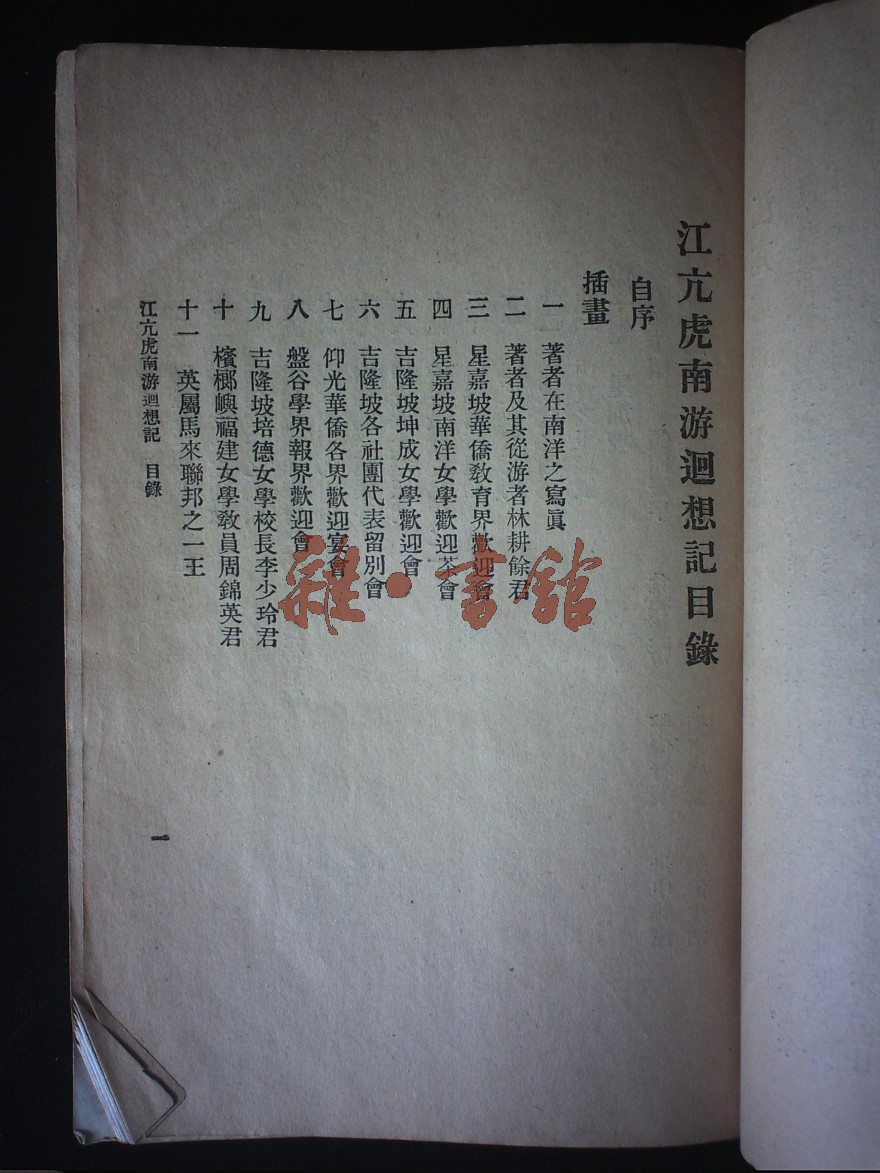 江亢虎南游迴想記目錄
自序
插畫
一 著者在南洋之寫眞
二 著者及其從游者林耕餘君
三 星嘉坡華僑教育界歡迎會
四 星嘉坡南洋女學歡迎茶會
五 吉隆坡坤成女學歡迎會
六 吉隆坡各社團代表留別會
七 仰光華僑各界歡迎宴會
八 盤谷學界報界歡迎會
九 吉隆坡培德女學校長李少玲君
十 檳榔嶼福建女學教員周錦英君
十一 英屬馬來聯邦之一王
江亢虎南游迴想記 目錄
一
雜·書館